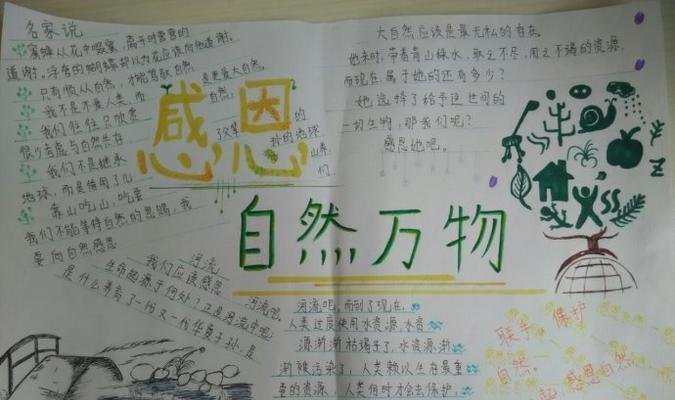 名家说
蜜蜂从花中啜蜜，离开时营营的
道谢。浮夸的蝴蝶却以为花应该向他道谢。
只有顺从自然，才能驾驭自然。
我不是不爱人类，而是更爱大自然。
我们往往只欣赏自然，
很少考虑与自然共存
我们不是继承了父辈的
地球，而是借用了儿孙的地球
靠山吃山，吃要
我们不能等待自然的恩赐，我们
要向自然感恩
感恩
自然万物
大自然应该是最无私的存在。
她来时，带着青山绿水，取之不尽，用之不竭的资源，
而现在属于她的还有多少？
她选择了给予这世间的
一切生物，那我们呢？
感恩她吧。
河流
我们应该感恩河流吧，
生命起源于何处？正是河流中吧
是什么养育了一代又一代华夏子孙，是
河流吧。而到了现在，
人类过度使用水资源，水资
源渐渐枯竭了，水资源渐
渐被污染了，人类赖以生存最重
要的资源，人类何时才会去保护。
联手 保护
自然。
一起，感恩自然。